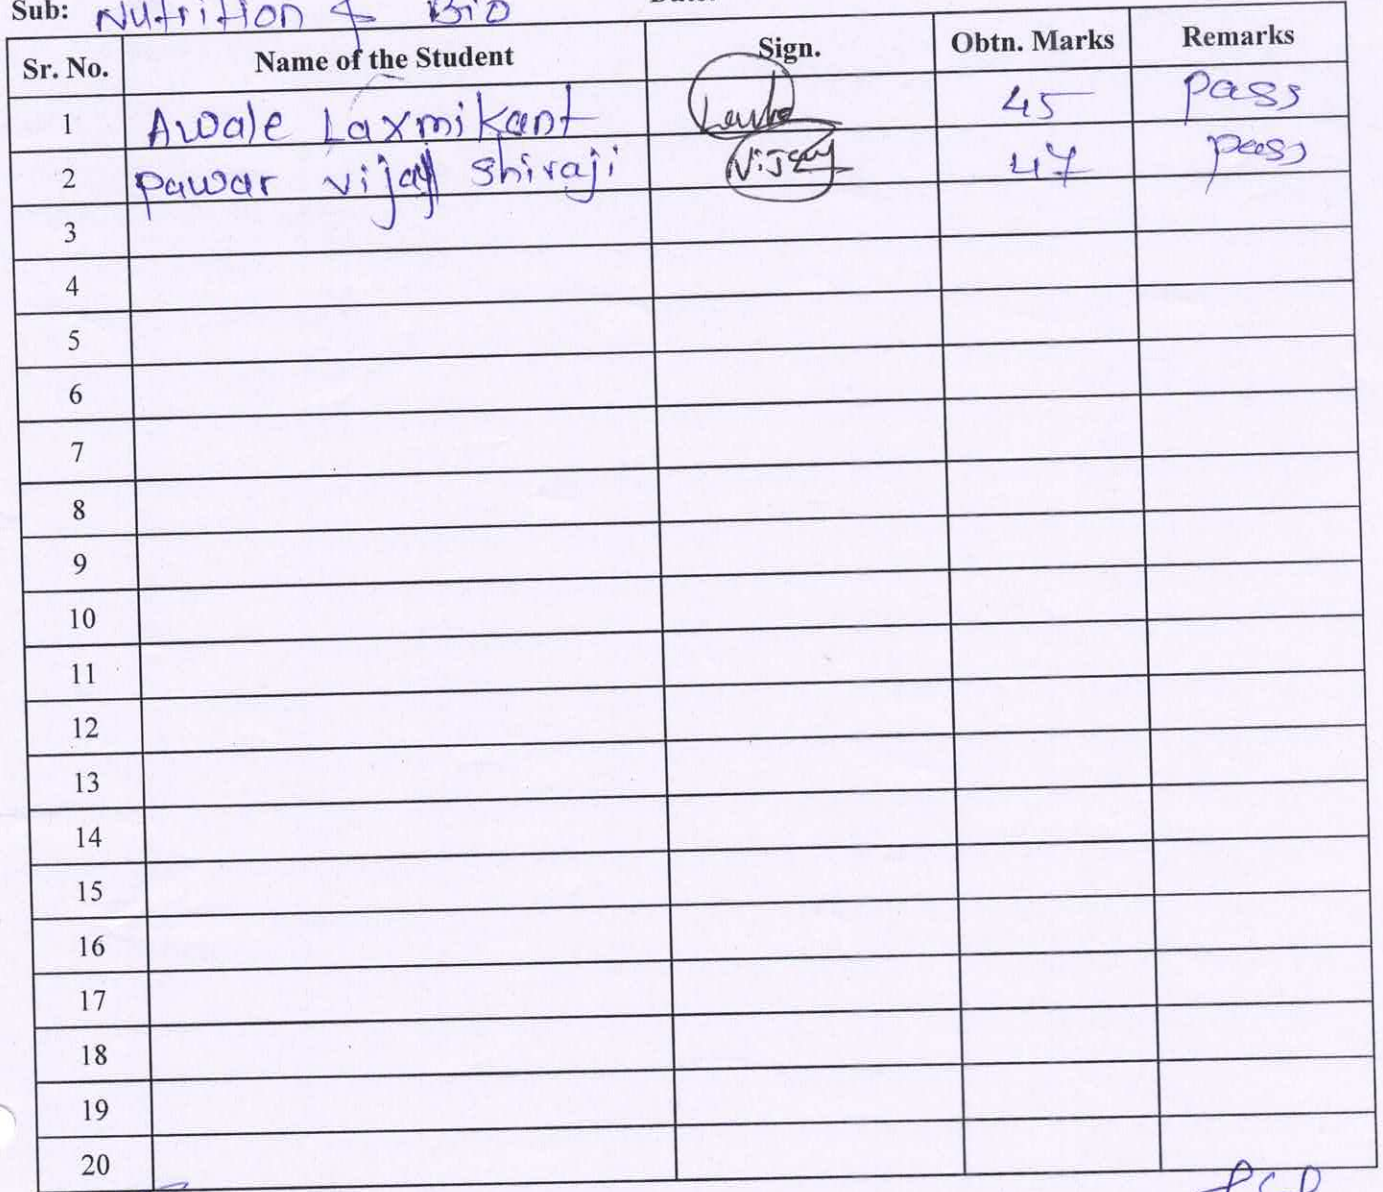 Sub: Nutrition & Bio
Sr. No. Name of the Student Sign. Obtn. Marks Remarks
1 Awale Laxmikant 45 pass
2 Pawar vijay Shivaji Vijay 47 pass
3
4
5
6
7
8
9
10
11
12
13
14
15
16
17
18
19
20